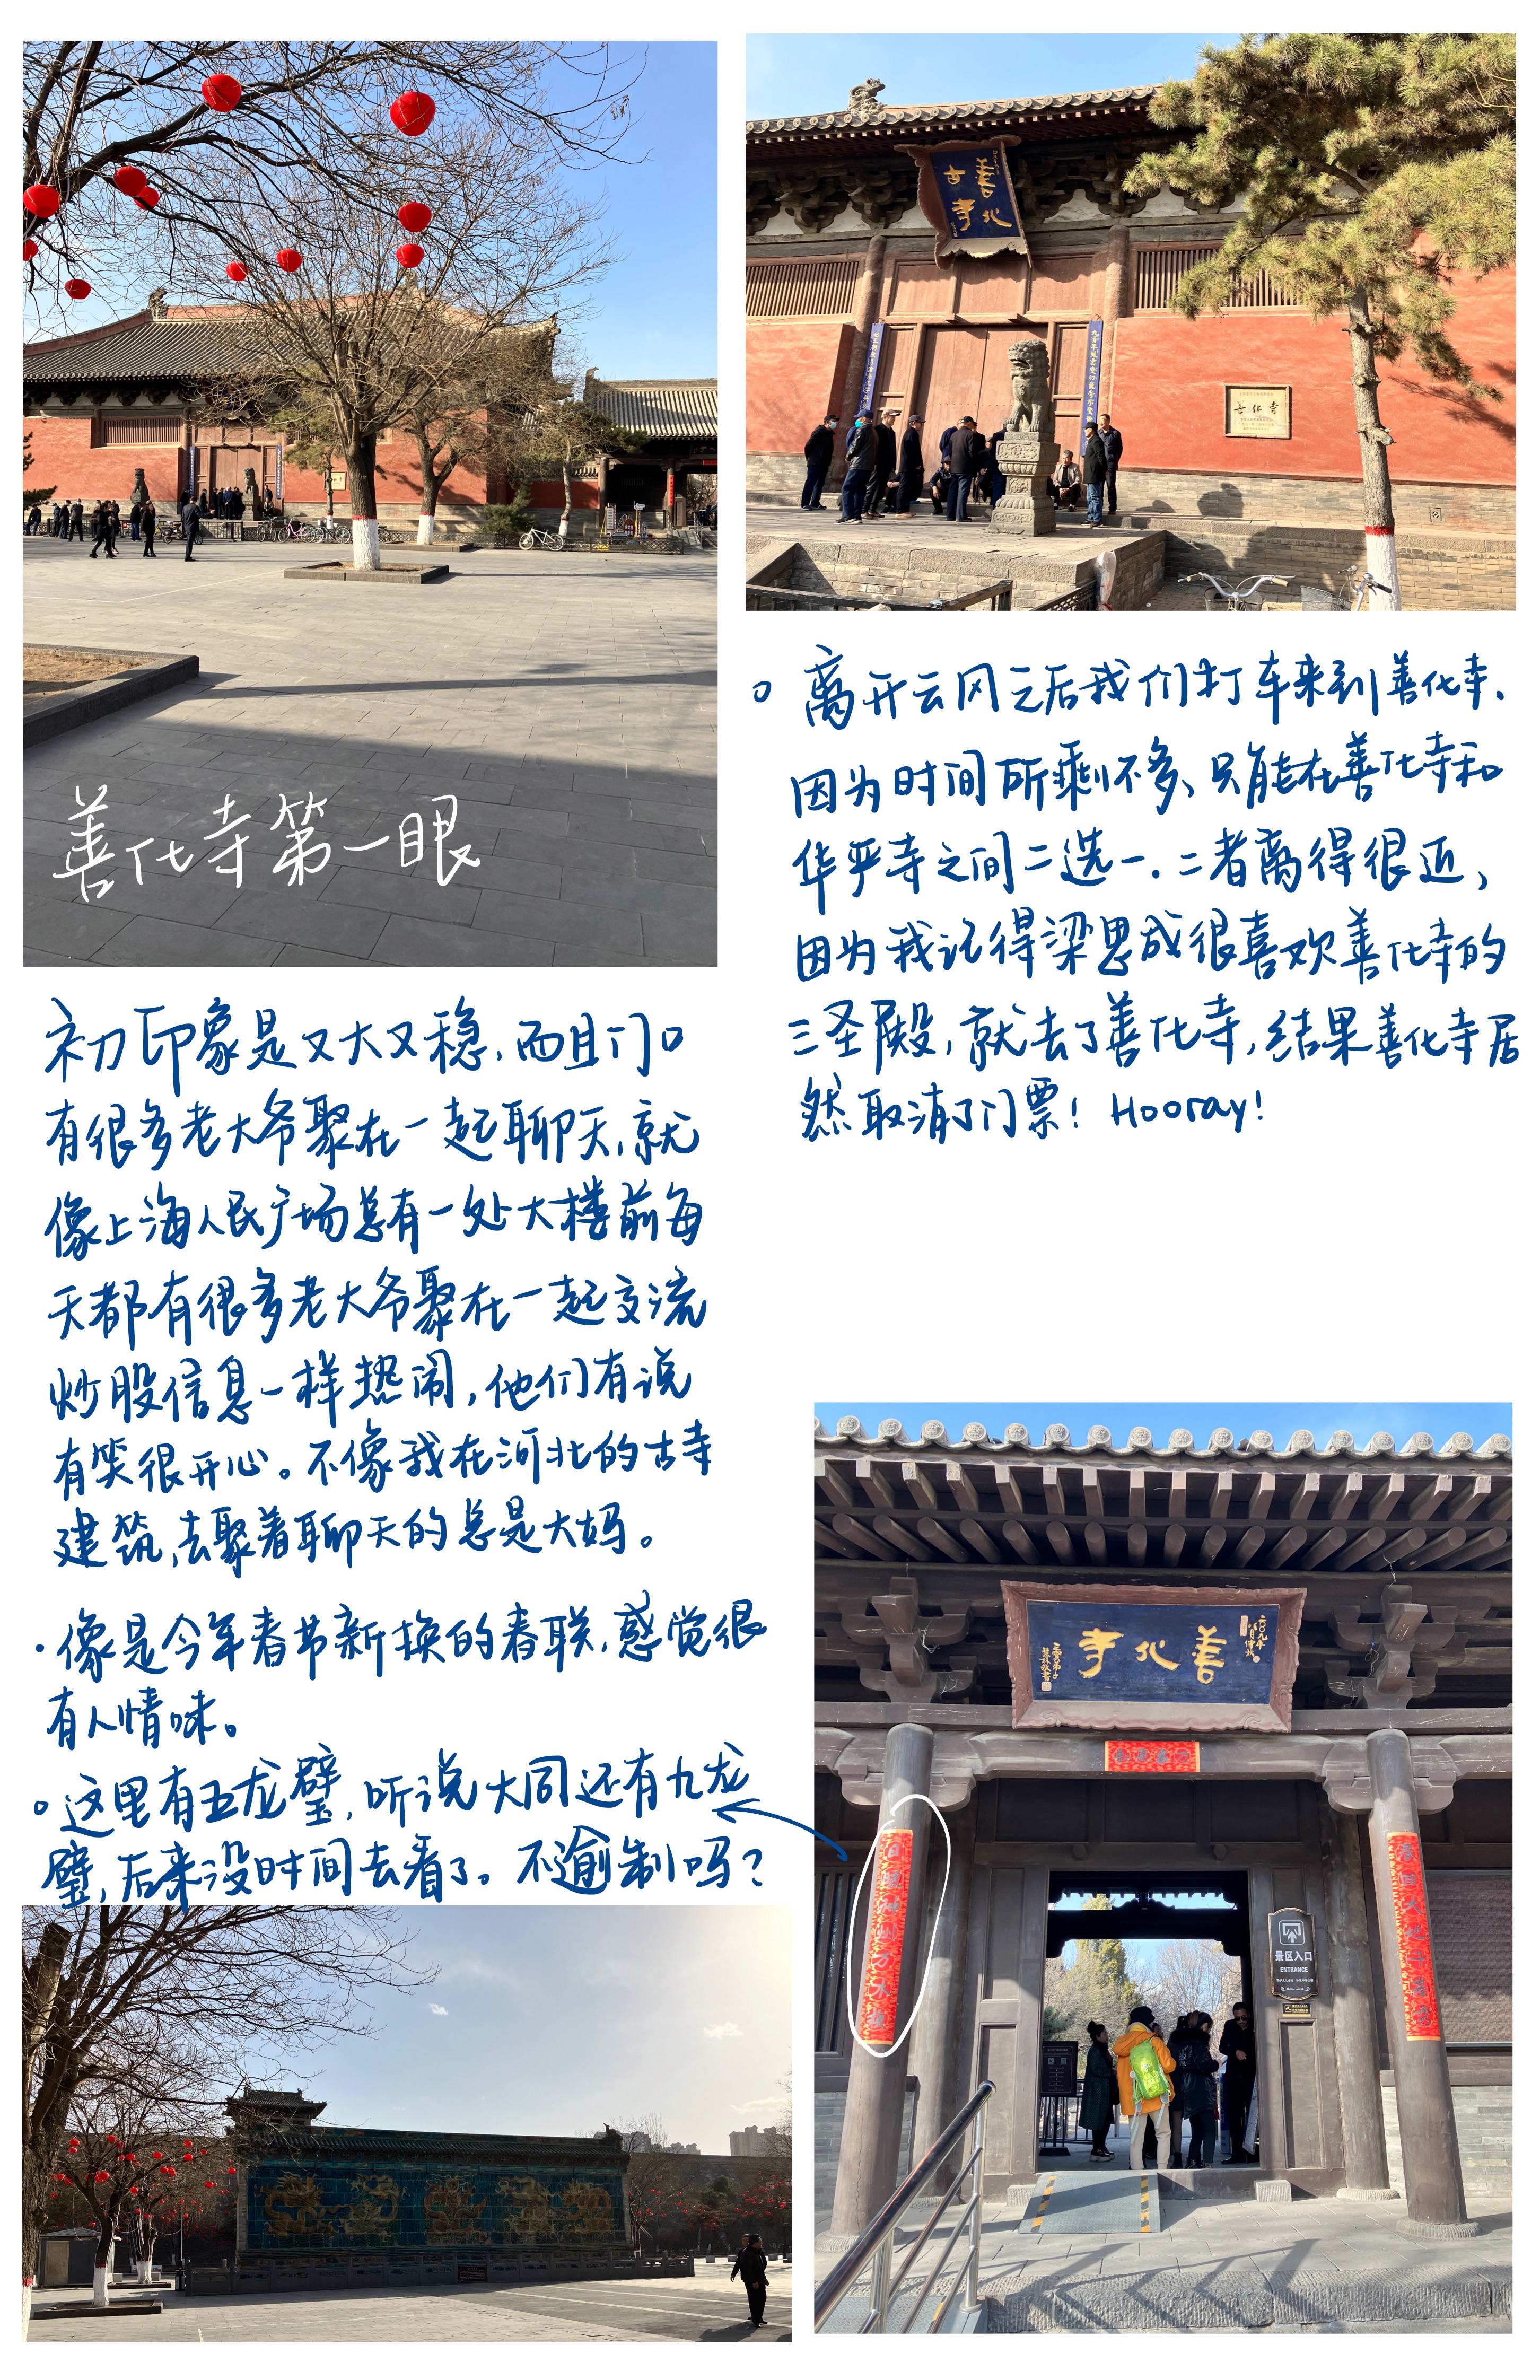 善化寺第一眼
善化古寺
善化寺
离开云冈之后我们打车来到善化寺.
因为时间所剩不多、只能在善化寺和
华严寺之间二选一.二者离得很近,
因为我记得梁思成很喜欢善化寺的
三圣殿,就去了善化寺,结果善化寺居
然取消了门票! Hooray!
初印象是又大又稳.而且门口
有很多老大爷聚在一起聊天,就
像上海人民广场总有一处大楼前每
天都有很多老大爷聚在一起交流
炒股信息一样热闹,他们有说
有笑很开心。不像我在河北的古寺
建筑,去聚着聊天的总是大妈。
·像是今年春节新换的春联,感觉很
有人情味。
这里有五龙璧,听说大同还有九龙
璧,后来没时间去看了。不逾制吗?
善化寺
景区入口
ENTRANCE